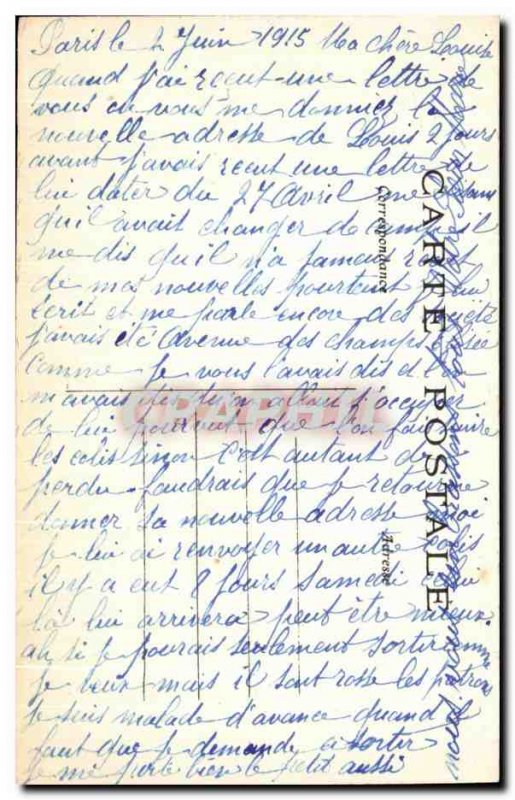 Paris le 2 Juin 1915 Ma chère Louise
quand j'ai reçut une lettre de
vous ou vous me donniez la
nouvelle adresse de Louis 2 jours
avant j'avais reçut une lettre de
lui dater du 27 Avril me disans
qu'il avait changer de camp il
me dis qu'il n'a jamais reçut
de mes nouvelles pourtant je lui
ecrit et me parle encore des
j'avais été Avenue des champs elisée
comme je vous l'avais dis et l'on
m'avais dis qu'on allais s'occuper
de lui pourvut que l'on
les colis sinon c'est autant de
perdu faudrais que je retourne
donner sa nouvelle adresse moi
je lui ai renvoyer un autre colis
il y a eut 8 jours Samedi celui
là lui arrivera peut être mieux
ah si je pouvais seulement sortir comme
je veux mais il sont rosse les patrons
je suis malade d'avance quand il
faut que je demande a sortir
je me porte bien le petit aussi
nous
CARTE POSTALE
Correspondance
Adresse
CPAPHIL